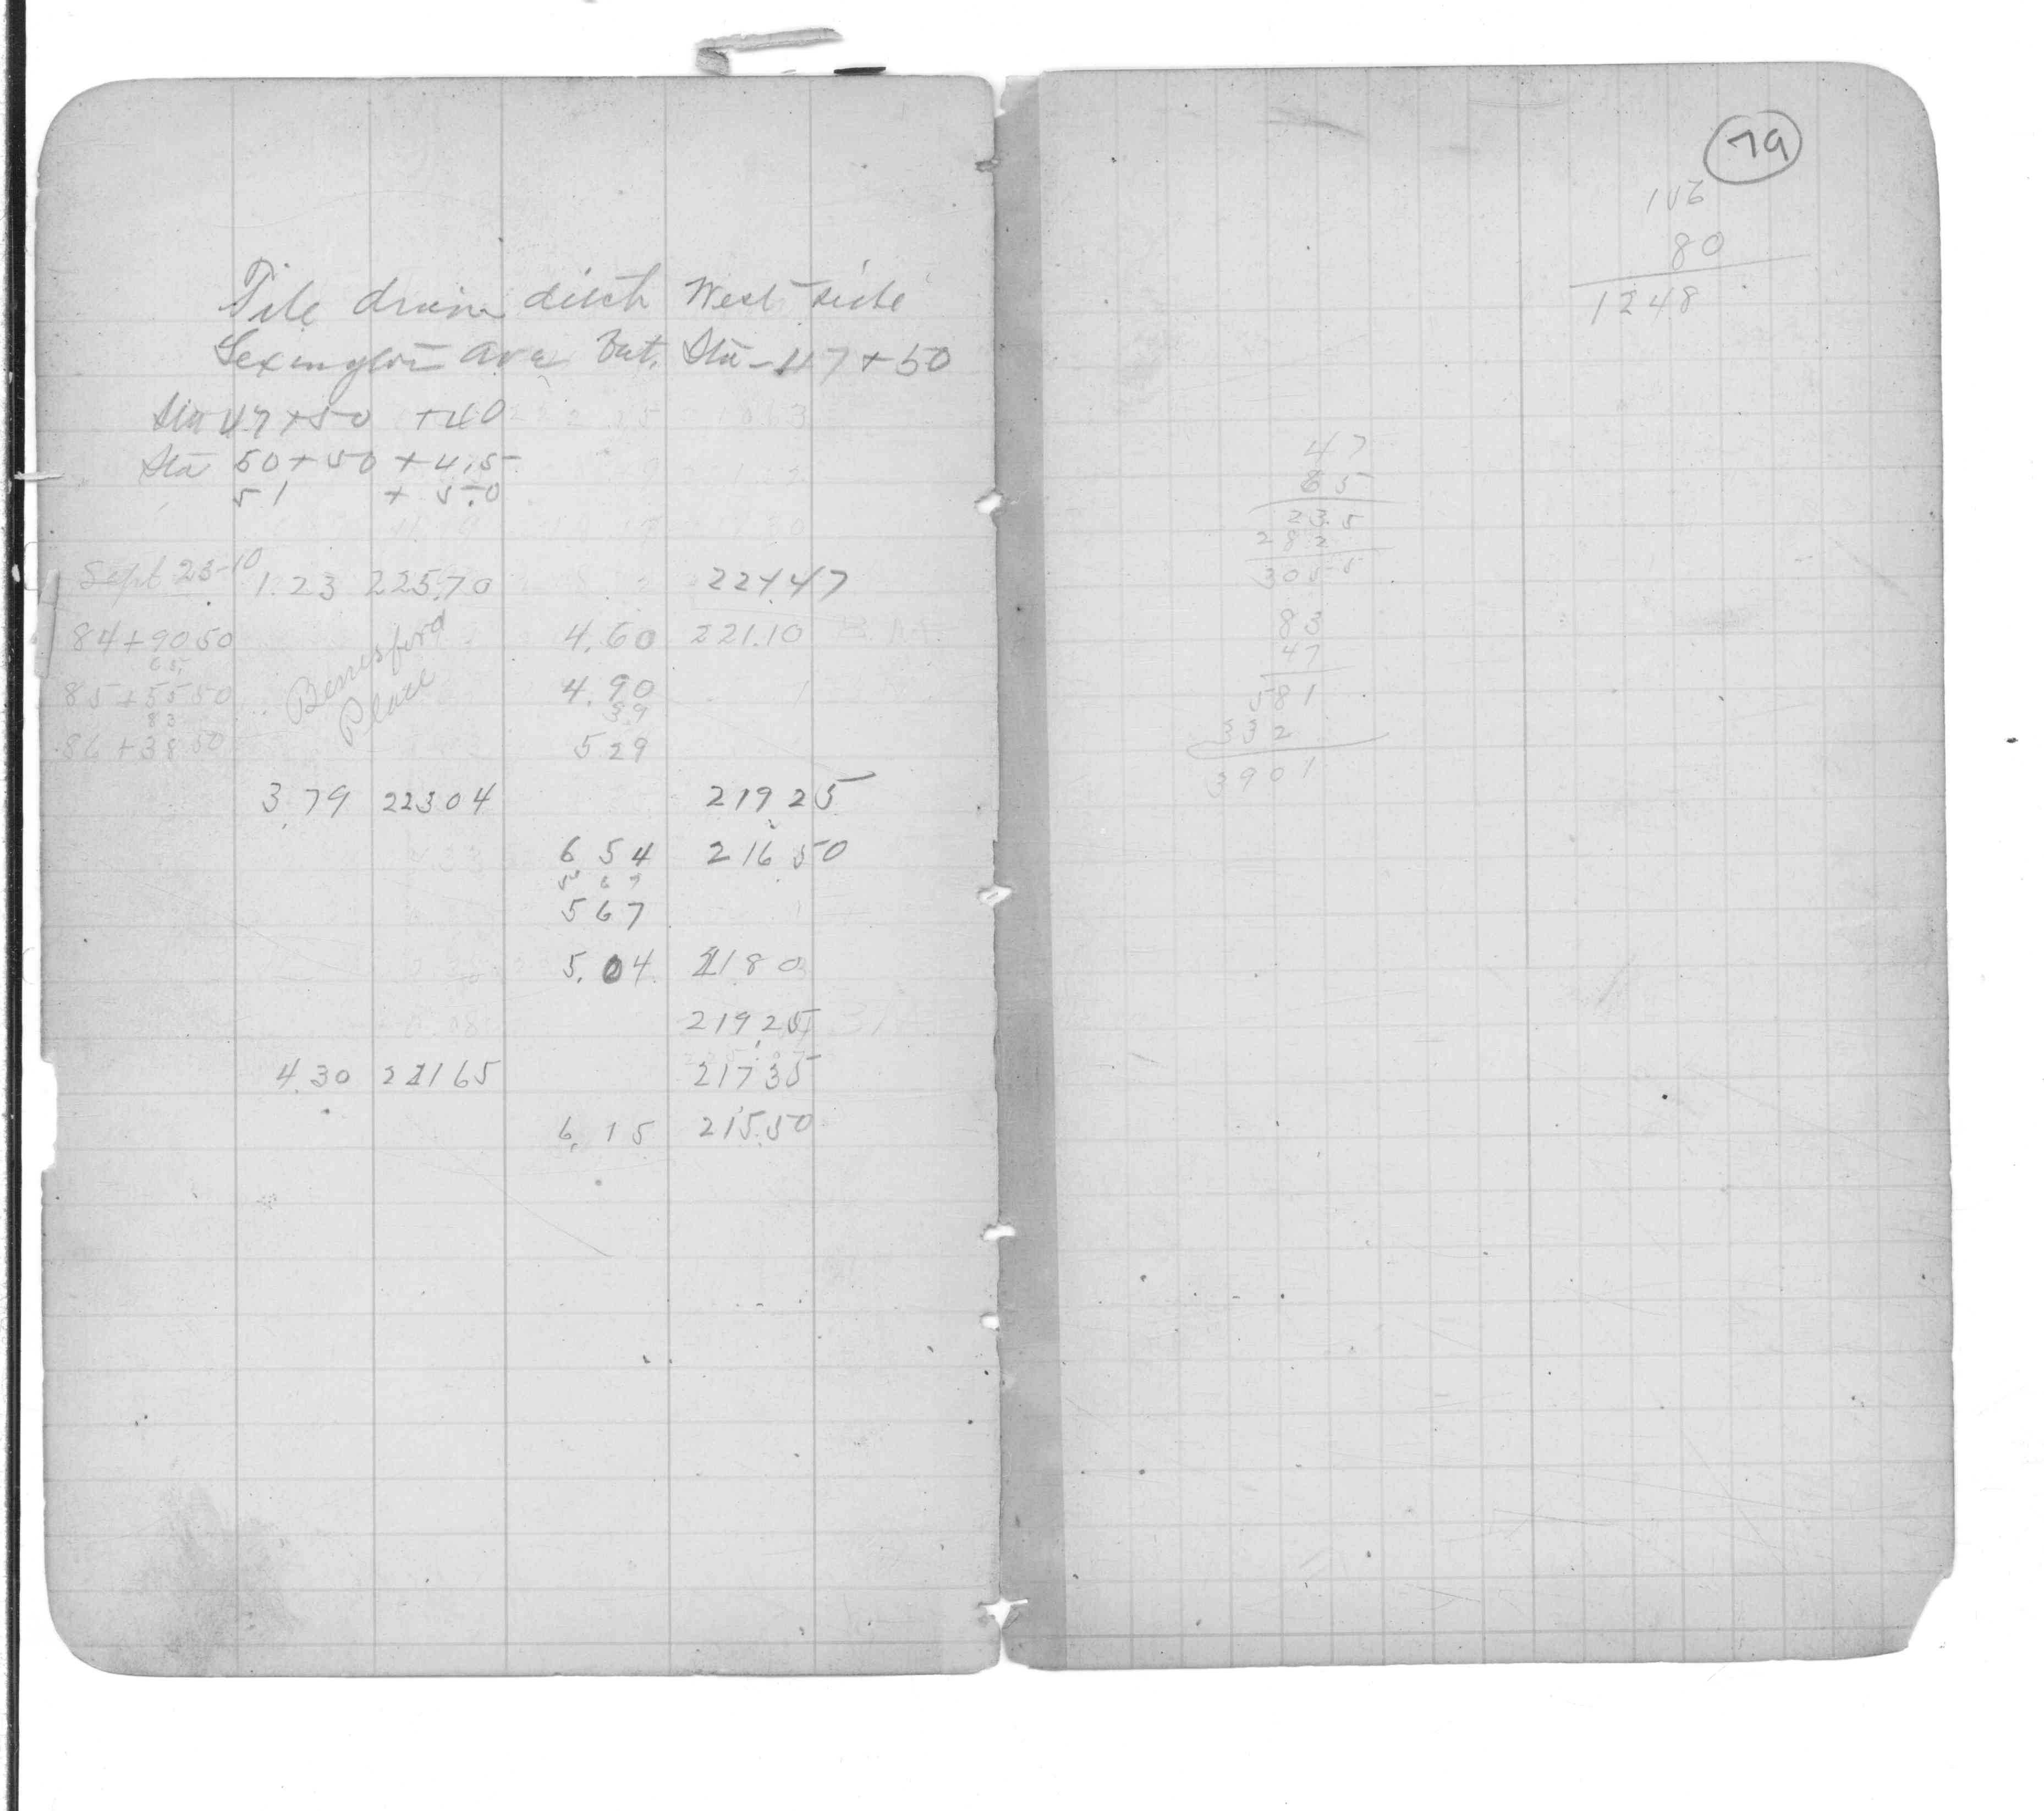 Tile drain ditch West side
Lexington Ave bet. Sta - 47+50
Sta 47+50 +40
Sta 50+50 +4.5
51 + 5.0
Sept 23-10 1.23 225.70 224.47
84+90.50 4.60 221.10 B.M.
65
85+55.50 4.90
83 39
86+38.50 5.29
Berresford
Place
3.79 223 04 219.25
6 54 216 50
5 6 7
5 6 7
5.04 218 0
219.25
4.30 221 65 217 35
6.15 215.50
79
156
80
1248
47
65
235
282
3055
83
47
581
332
3901